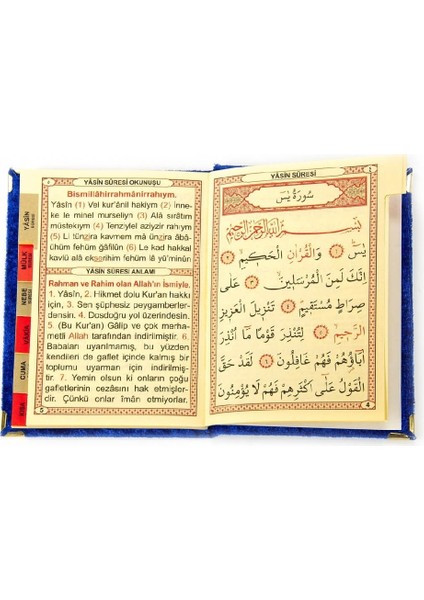 YÂSÎN SÛRESİ OKUNUŞU
Bismillâhirrahmânirrahıym.
Yâsîn (1) Vel kur'ânil hakiym (2) İnne-
ke le minel murseliyn (3) Alâ sırâtım
müstekıym (4) Tenziylel aziyzir rahıym
(5) Li tünzira kavmem mâ ünzira âbâ-
ühüm fehüm ğâfilûn (6) Le kad hakkal
kavlü alâ ekserihim fehüm lâ yü'minûn
YÂSÎN SÛRESİ ANLAMI
Rahman ve Rahim olan Allah'ın İsmiyle.
1. Yâsîn, 2. Hikmet dolu Kur'an hakkı
için, 3. Sen elbette peygamberlerden-
sin. 4. Dosdoğru yol üzerindesin.
5. (Bu Kur'an) Gâlip ve çok merha-
metli Allah tarafından indirilmiştir. 6.
Babaları uyarılmamış, bu yüzden
kendileri de gaflet içinde kalmış bir
toplumu uyarman için indirilmiş-
tir. 7. Yemin olsun ki onların çoğu
gafletlerinin cezasını hak etmişler-
dir. Çünkü onlar îmân etmiyorlar.
5
YÂSÎN
MÜLK
NEBE
VÂKIA
CUMA
YÂSÎN SÛRESİ
سُورَةُ يٰسٓ
بِسْمِ اللّٰهِ الرَّحْمٰنِ الرَّحِيمِ
يٰسٓ ﴿١﴾ وَالْقُرْاٰنِ الْحَكِيمِ ﴿٢﴾
اِنَّكَ لَمِنَ الْمُرْسَلِينَ ﴿٣﴾ عَلٰى
صِرَاطٍ مُسْتَقِيمٍ ﴿٤﴾ تَنْزِيلَ الْعَزِيزِ
الرَّحِيمِ ﴿٥﴾ لِتُنْذِرَ قَوْمًا مَا اُنْذِرَ
اٰبَاؤُهُمْ فَهُمْ غَافِلُونَ ﴿٦﴾ لَقَدْ حَقَّ
الْقَوْلُ عَلٰى اَكْثَرِهِمْ فَهُمْ لَا يُؤْمِنُونَ
4